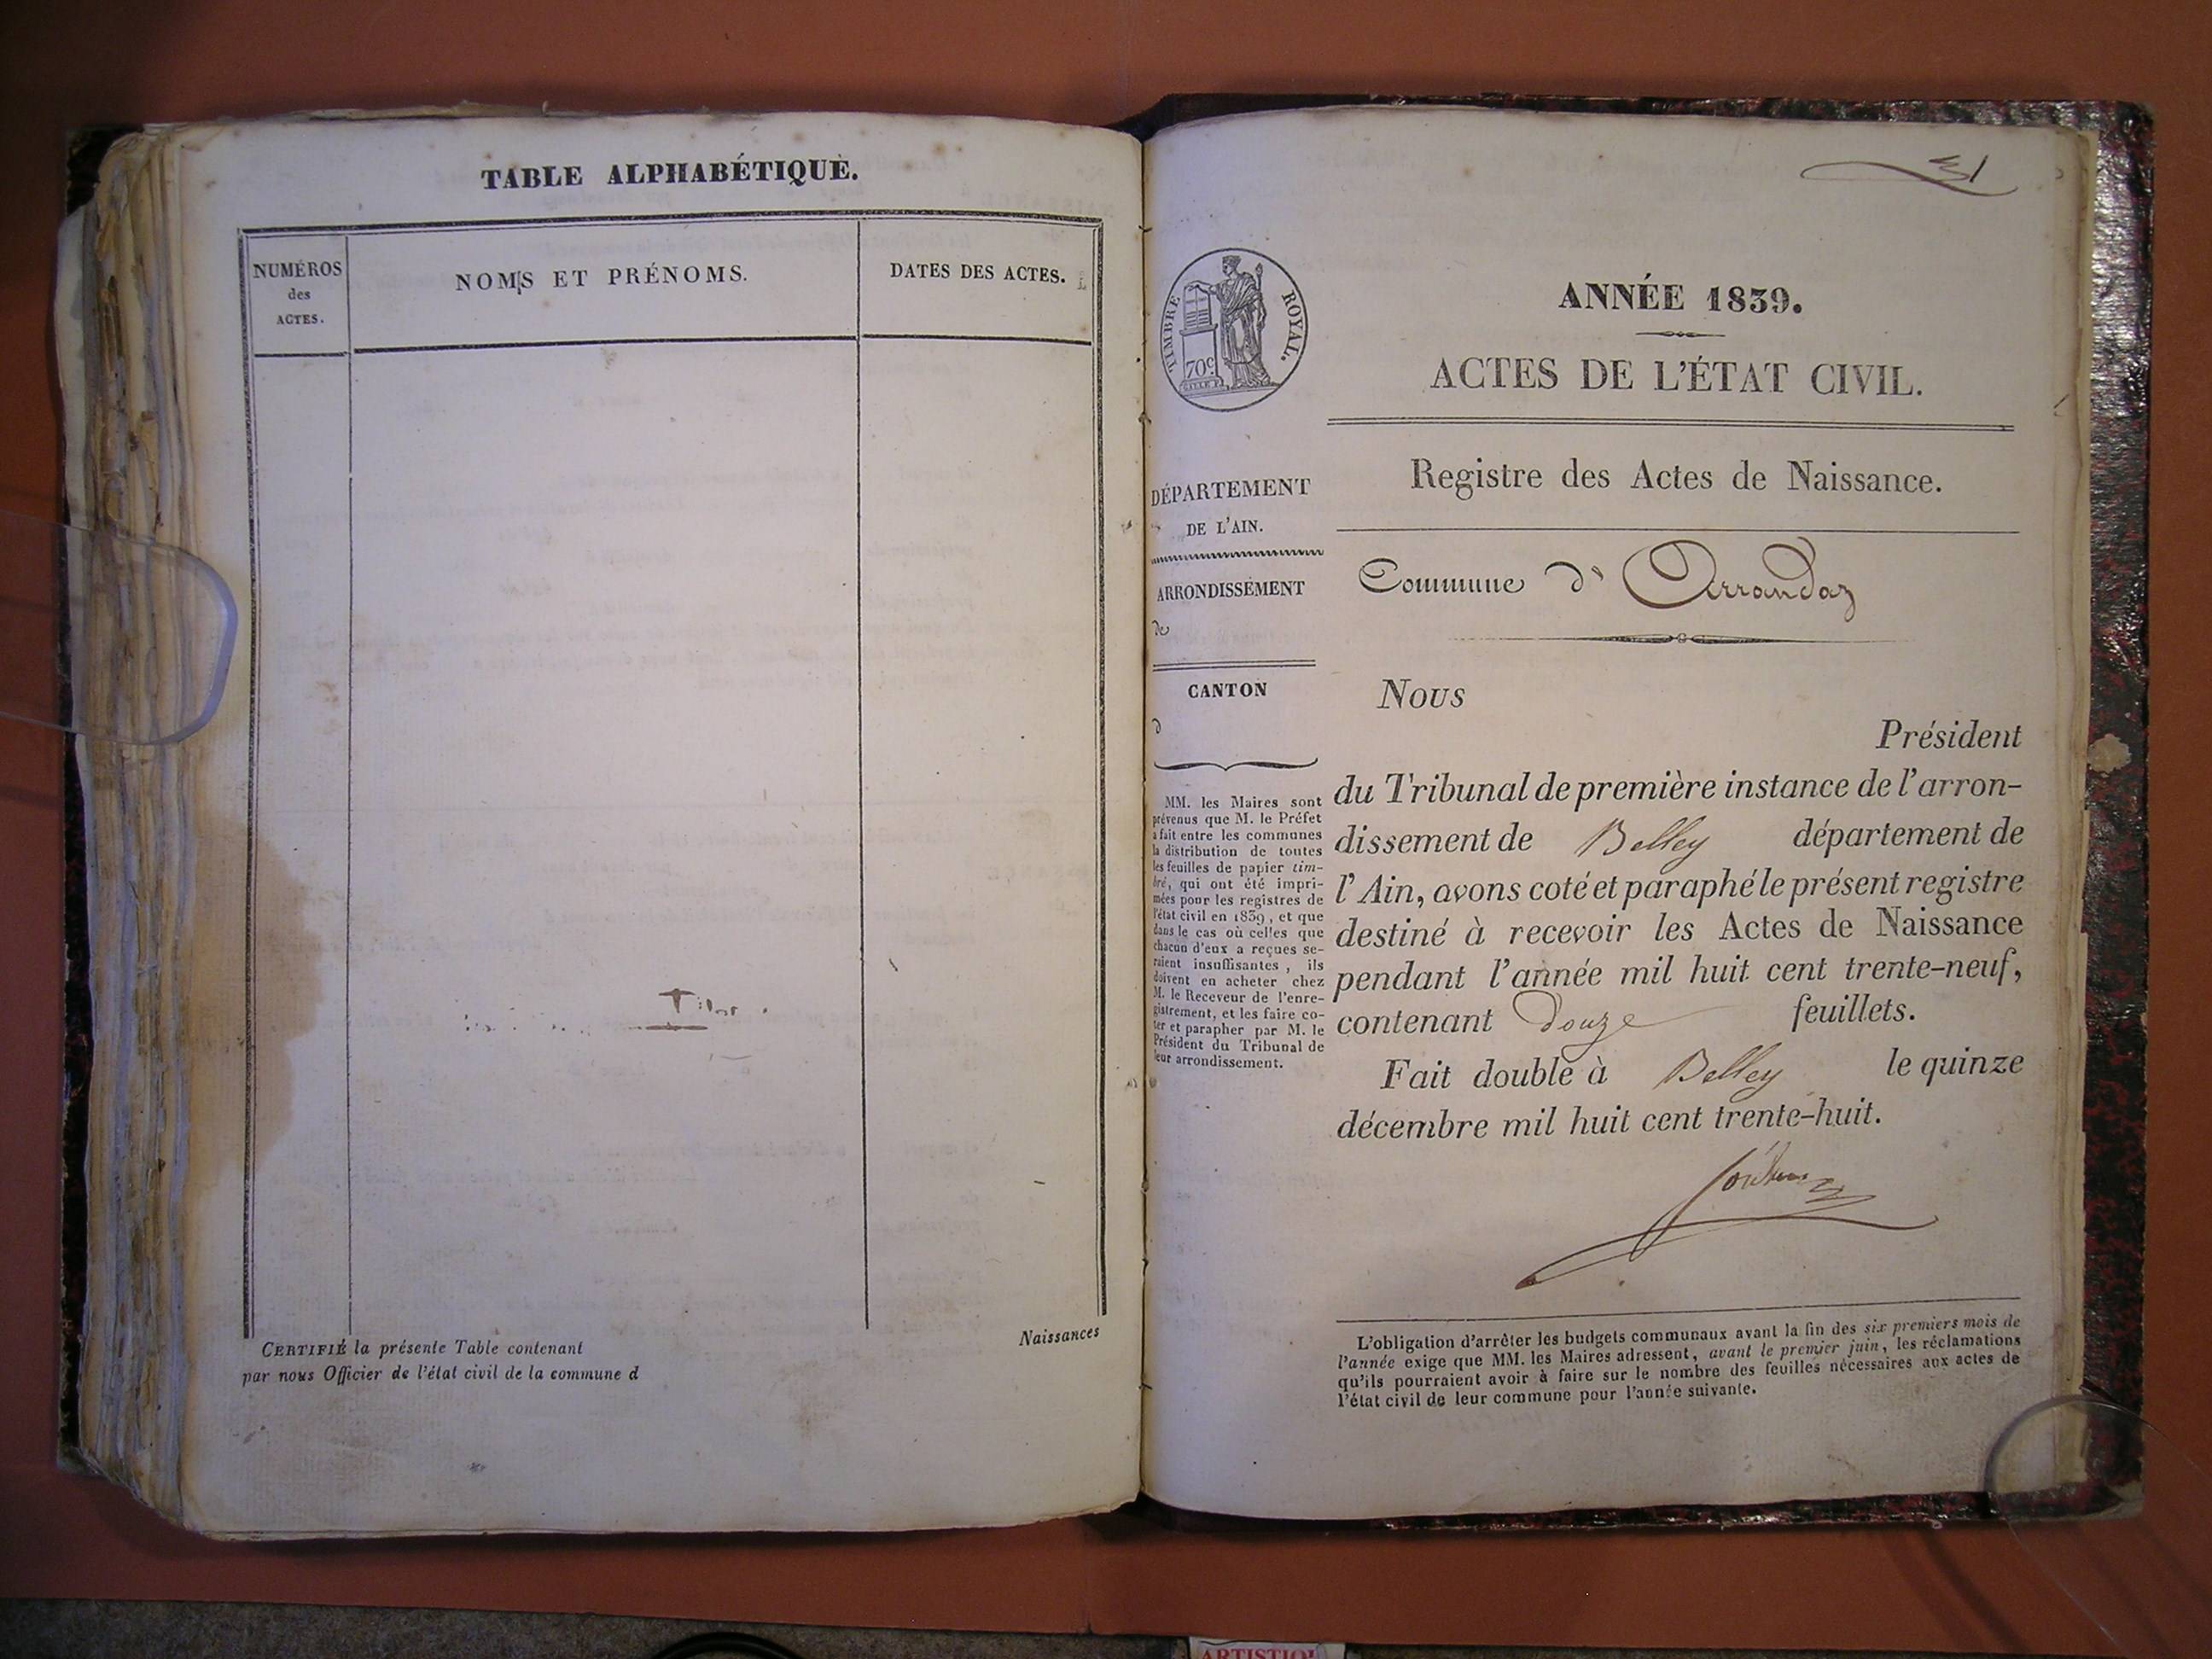 TABLE ALPHABÉTIQUE.
NUMÉROS
des
ACTES.
NOMS ET PRÉNOMS.
DATES DES ACTES.
CERTIFIÉ la présente Table contenant
par nous Officier de l'état civil de la commune d
Naissances
TIMBRE ROYAL.
70c
ANNÉE 1839.
ACTES DE L'ÉTAT CIVIL.
Registre des Actes de Naissance.
DÉPARTEMENT
DE L'AIN.
ARRONDISSEMENT
de
CANTON
d
MM. les Maires sont
prévenus que M. le Préfet
a fait entre les communes
la distribution de toutes
les feuilles de papier tim-
bré, qui ont été impri-
mées pour les registres de
l'état civil en 1839, et que
dans le cas où celles que
chacun d'eux a reçues se-
raient insuffisantes, ils
doivent en acheter chez
M. le Receveur de l'enre-
gistrement, et les faire co-
ter et parapher par M. le
Président du Tribunal de
leur arrondissement.
Commune d' Arrandaz
Nous
Président
du Tribunal de première instance de l'arron-
dissement de Belley département de
l'Ain, avons coté et paraphé le présent registre
destiné à recevoir les Actes de Naissance
pendant l'année mil huit cent trente-neuf,
contenant douze feuillets.
Fait double à Belley le quinze
décembre mil huit cent trente-huit.
L'obligation d'arrêter les budgets communaux avant la fin des six premiers mois de
l'année exige que MM. les Maires adressent, avant le premier juin, les réclamations
qu'ils pourraient avoir à faire sur le nombre des feuilles nécessaires aux actes de
l'état civil de leur commune pour l'année suivante.